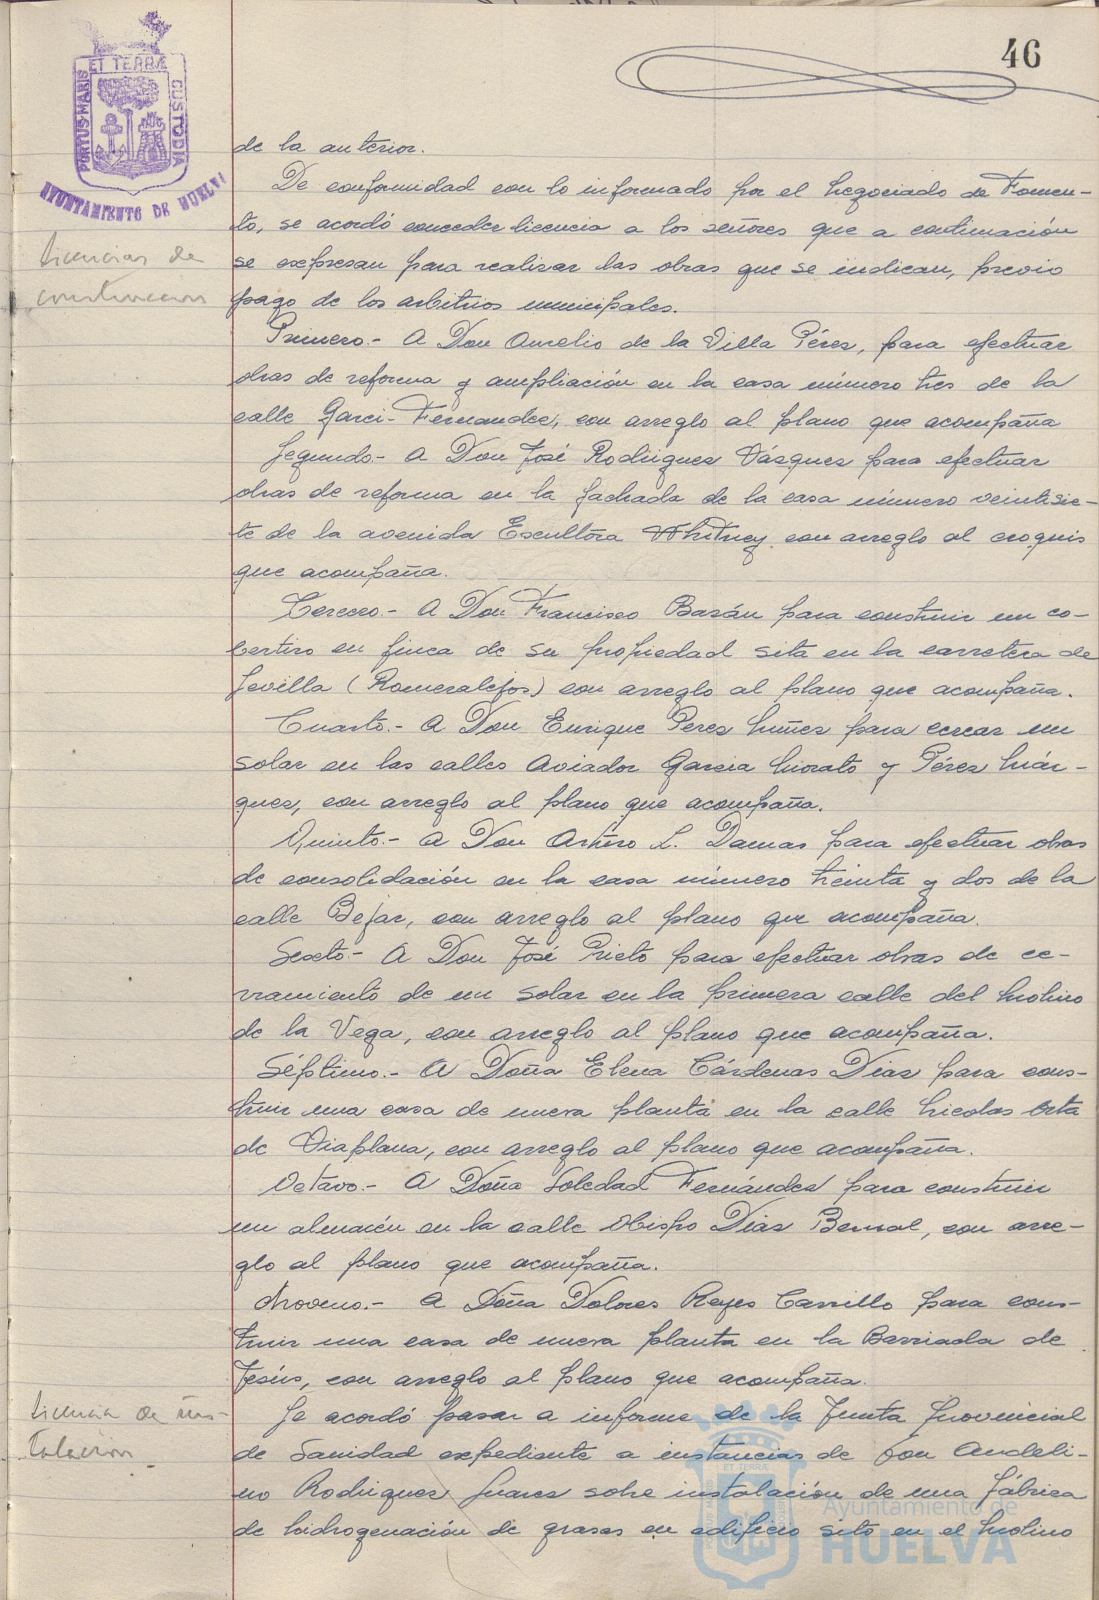 46
PORTUS MARIS ET TERRÆ CUSTODIA
AYUNTAMIENTO DE HUELVA
de la anterior.
De conformidad con lo informado por el Negociado de Fomen-
to, se acordó conceder licencia a los señores que a continuación
Licencias de
se expresan para realizar las obras que se indican, previo
construccion
pago de los arbitrios municipales.
Primero.- A Don Aurelio de la Villa Pérez, para efectuar
obras de reforma y ampliación en la casa número tres de la
calle Garci-Fernandez, con arreglo al plano que acompaña
Segundo.- A Don José Rodriguez Vázquez para efectuar
obras de reforma en la fachada de la casa número veintisie-
te de la avenida Escultora Whitney con arreglo al croquis
que acompaña.
Tercero.- A Don Francisco Bazán para construir un co-
bertizo en finca de su propiedad sita en la carretera de
Sevilla (Romeralejos) con arreglo al plano que acompaña.
Cuarto.- A Don Enrique Perez Nuñez para cercar un
solar en las calles Aviador Garcia Morato y Pérez Már-
quez, con arreglo al plano que acompaña.
Quinto.- A Don Arturo L. Damas para efectuar obras
de consolidación en la casa número treinta y dos de la
calle Bejar, con arreglo al plano que acompaña.
Sexto.- A Don José Prieto para efectuar obras de ce-
rramiento de un solar en la primera calle del Molino
de la Vega, con arreglo al plano que acompaña.
Séptimo.- A Doña Elena Cárdenas Diaz para cons-
truir una casa de nueva planta en la calle Nicolas Orta
de Viaplana, con arreglo al plano que acompaña.
Octavo.- A Doña Soledad Fernández para construir
un almacén en la calle Obispo Diaz Bernal, con arre-
glo al plano que acompaña.
Noveno.- A Doña Dolores Reyes Carrillo para cons-
truir una casa de nueva planta en la Barriada de
Jesús, con arreglo al plano que acompaña.
Licencia de ins-
Se acordó pasar a informe de la Junta Provincial
talacion
de Sanidad expediente a instancias de Don Andeli-
no Rodriguez Suarez sobre instalación de una fábrica
de hidrogenación de grasas en edificio sito en el Molino
Ayuntamiento de
HUELVA